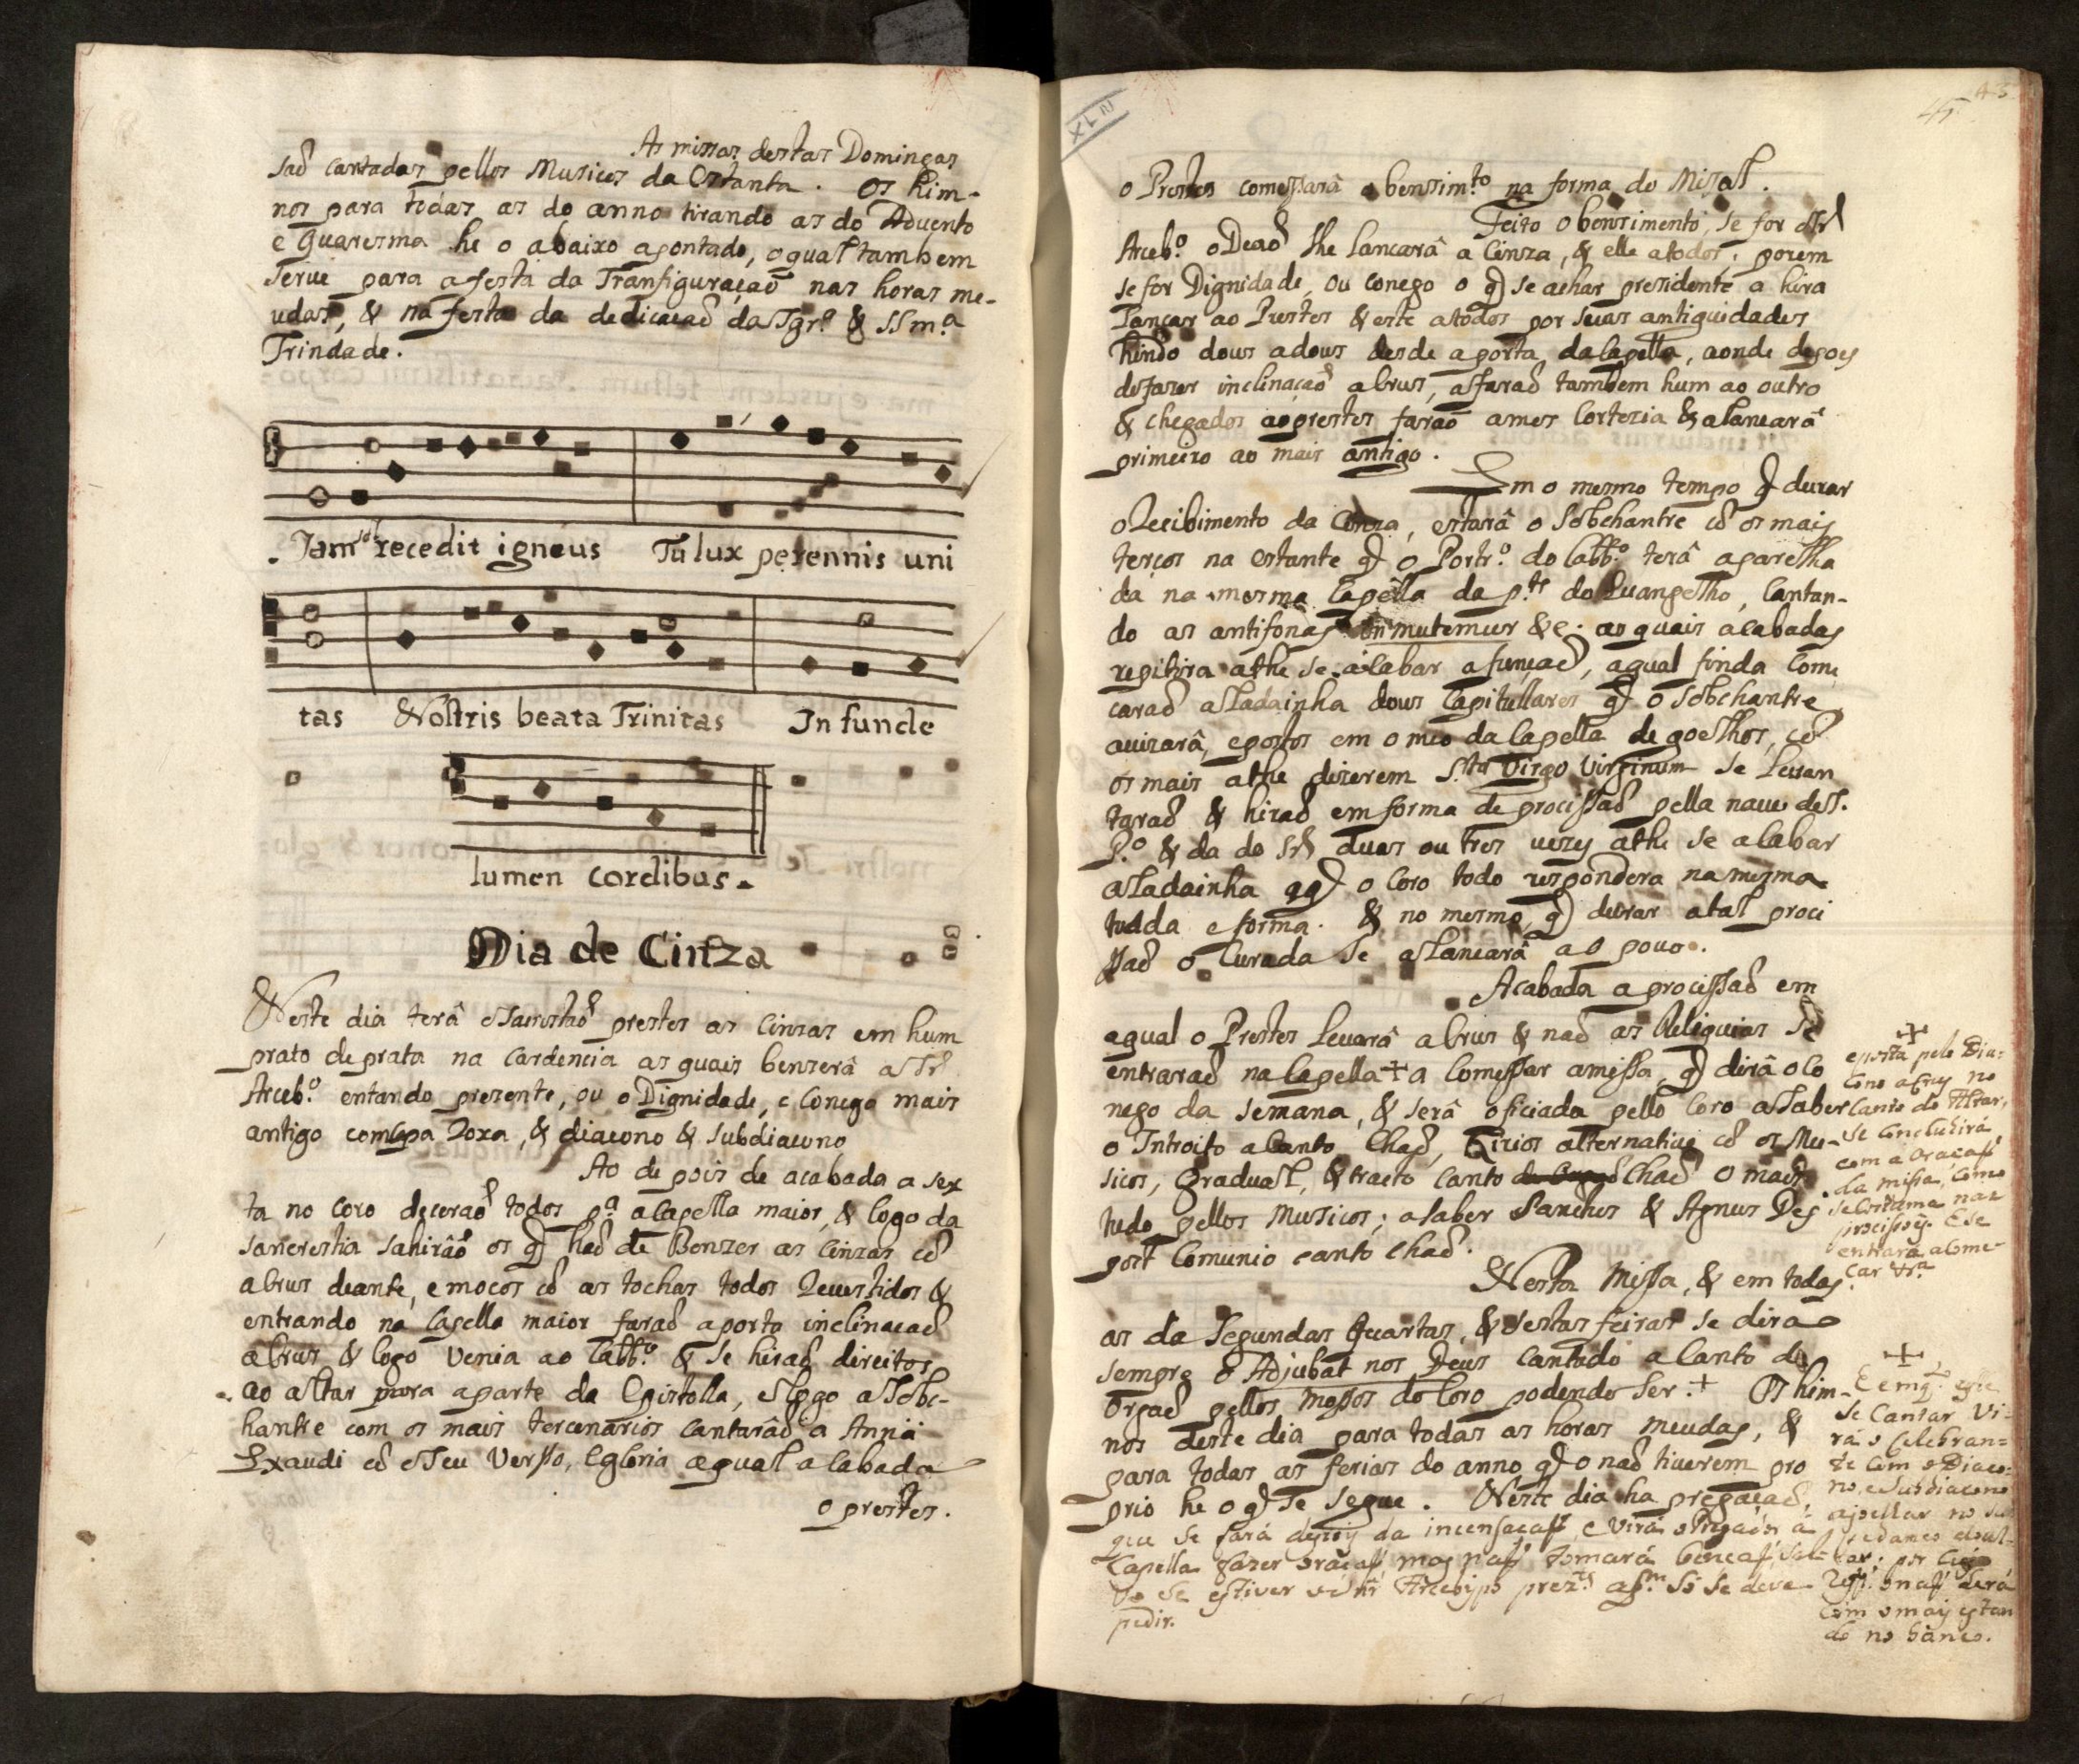 As missas destas Domingas
saõ cantadas pellos Musicos da Estanta. Os him-
nos para todas as do anno tirando as do Aduento
e Quaresma he o abaixo apontado, o qual tambem
serue para a festa da Transfiguraçaõ nas horas me-
udas, & na festa da dedicacaõ da Igrª & SSmª
Trindade.
. Jam sol recedit igneus Tu lux perennis uni
tas Nostris beata Trinitas In funde
lumen cordibus.
Dia de Cinza
Neste dia terâ o Sacristaõ prestes as Cinsas em hum
prato de prata na Cardencia as quais benserâ o Sr
Arcebº entando prezente, ou o Dignidade, e Conego mais
antigo com Capa Roxa, & diacono & subdiacono
Ao de pois de acabada a sex
ta no coro deceraõ todos pª a Capella maior, & logo da
sancrestia sahiraõ os q haõ de Benzer as Cinzas cõ
a brus deante, e mocos cõ as tochas todos Reuestidos &
entrando na Capella maior faraõ a porta inclinacaõ
a brus & logo venia ao Cabbº & se hiraõ direitos
ao altar para a parte da Epistolla, e logo o Sobc-
hantre com os mais tercenarios cantaraõ a Anna
Exaudi cõ o seu Verso, e gloria a qual acabada
o prestes.
43
45
XLIV
o Prestes comessarâ o bensimto na forma do Misal.
Feito o bensimento, se for o Sr
Arcebº o Deaõ lhe lancarâ a Cinza, & elle a todos, porem
se for Dignidade, ou conego o q se achar presidente a hira
lancar ao Prestes & este a todos por suas antiguidades
hindo dous a dous desde a porta da Capella, aonde depoes
de fazer inclinaçaõ a brus, a faraõ tambem hum ao outro
& chegados ao prestes faraõ a mes Cortezia & a lancarâ
primeiro ao mais antigo.
Em o mesmo tempo q durar
o Recibimento da Cinza, estarâ o Sobchantre cõ os mais
terços na estante q o Portrº do Cabbº terâ aparelha
da na mesma Capella da pte do Euangelho, Cantan-
do as antifonas Inmutemur &c. as quais acabadas
repitira athe se acabar a funçaõ, a qual finda Come
caraõ a Ladainha dous Capitullares q o Sobchantre
auizarâ, e postos em o meo da Capella de goelhos, cõ
os mais athe dizerem Sta Virgo Virginum se leuan
taraõ & hiraõ em forma de procissaõ pella naue de S.
Pº & da do Sr duas ou tres uezes athe se acabar
a Ladainha a q o Coro todo respondera na mesma
tuada e forma. & no mesmo q durar a tal proci
saõ o Curada Se a lancarâ ao pouo.
Acabada a procissaõ em
a qual o Prestes leuarâ a brus & naõ as Reliquias Se
entraraõ na Capella + a Comessar a missa q dirâ o Co
nego da semana, & serâ oficiada pello Coro a saber
o Introito a Canto Chaõ, Kirios alternative cõ os Mu-
sicos, Gradual, & tracto canto Chaõ O mais
tudo pellos Musicos; a saber Sanctus & Agnus Dei.
post Comunio canto chaõ.
Nesta Missa, & em todas
as da Segundas Quartas, & sestas feiras se dirâ
sempre o Adjubat nos Deus cantado a Canto de
orgaõ pellos Mossos do Coro podendo Ser. + Os him-
nos deste dia para todas as horas meudas, &
para todas as ferias do anno q o naõ tiuerem pro
prio he o q se segue. Neste dia ha pregaçaõ,
que se fará depois da incensaçaõ, e virá o Pregador á
Capella fazer oraçaõ, mas naõ tomará bençaõ, sal-
vo se estiver o Arcebispo prezte. a qm só se deve
pedir.
+
e posta pelo Dia-
cono a Cruz no
Canto do Altar,
se concluirá
com a oraçaõ
da missa, como
se costuma nas
procissoẽs. E se
entrará a come-
car
+
E emqto este
se Cantar vi-
rá o Celebran-
te com o Diaco-
no, e Subdiacono
ajoelhar no
do al-
tar; por cuja
com o mais estan
do no banco.